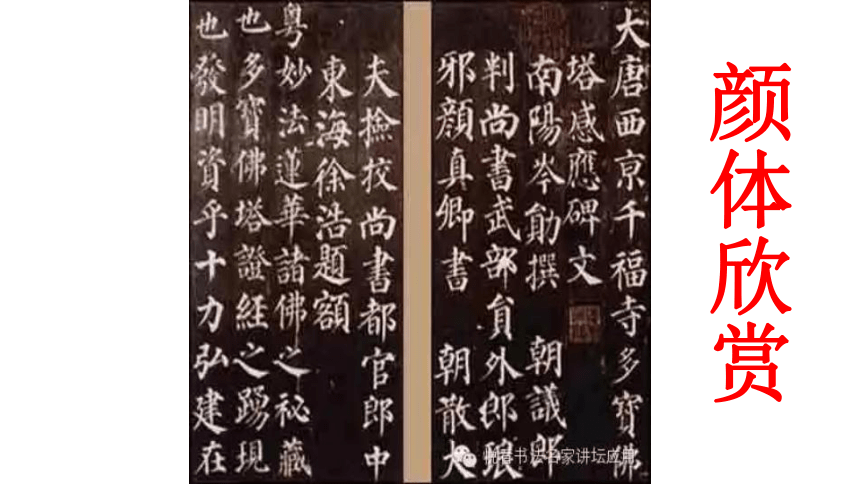 颜体欣赏
大唐西京千福寺多寳佛
塔感應碑文
南陽岑勛撰 朝議郎
判尚書武部員外郎琅
邪顏真卿書 朝散大
夫撿挍尚書都官郎中
東海徐浩題額
粵妙法蓮華諸佛之祕藏
也多寳佛塔證經之踴現
也發明資乎十力弘建在
书法名家讲坛应用